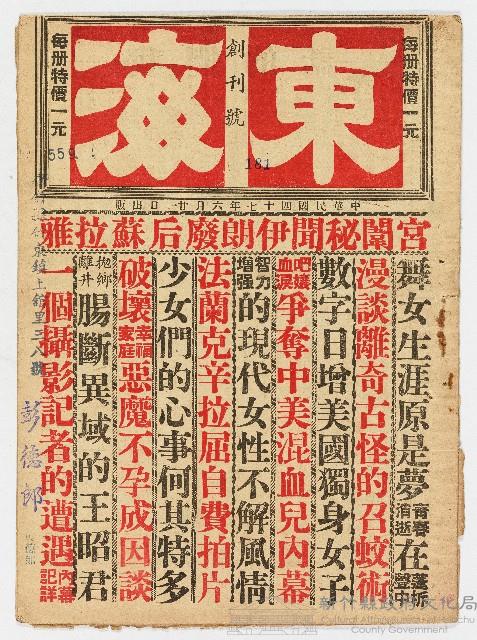 東海
創刊號
每册特價一元
每册特價一元
181
559
中華民國四十七年六月廿一日出版
宮闈秘聞伊朗廢后蘇拉雅
舞女生涯原是夢青春消逝在蓬拆聲中
漫談離奇古怪的召蚊術
數字日增美國獨身女子
吧孃血淚爭奪中美混血兒內幕
智力增强的現代女性不解風情
法蘭克辛拉屈自費拍片
少女們的心事何其特多
破壞幸福家庭惡魔不孕成因談
拋鄉離井腸斷異域的王昭君
一個攝影記者的遭遇內幕記詳
鎮上舘里三八號
彭德郎
新竹縣政府文化局
Cultural Affairs
County Government